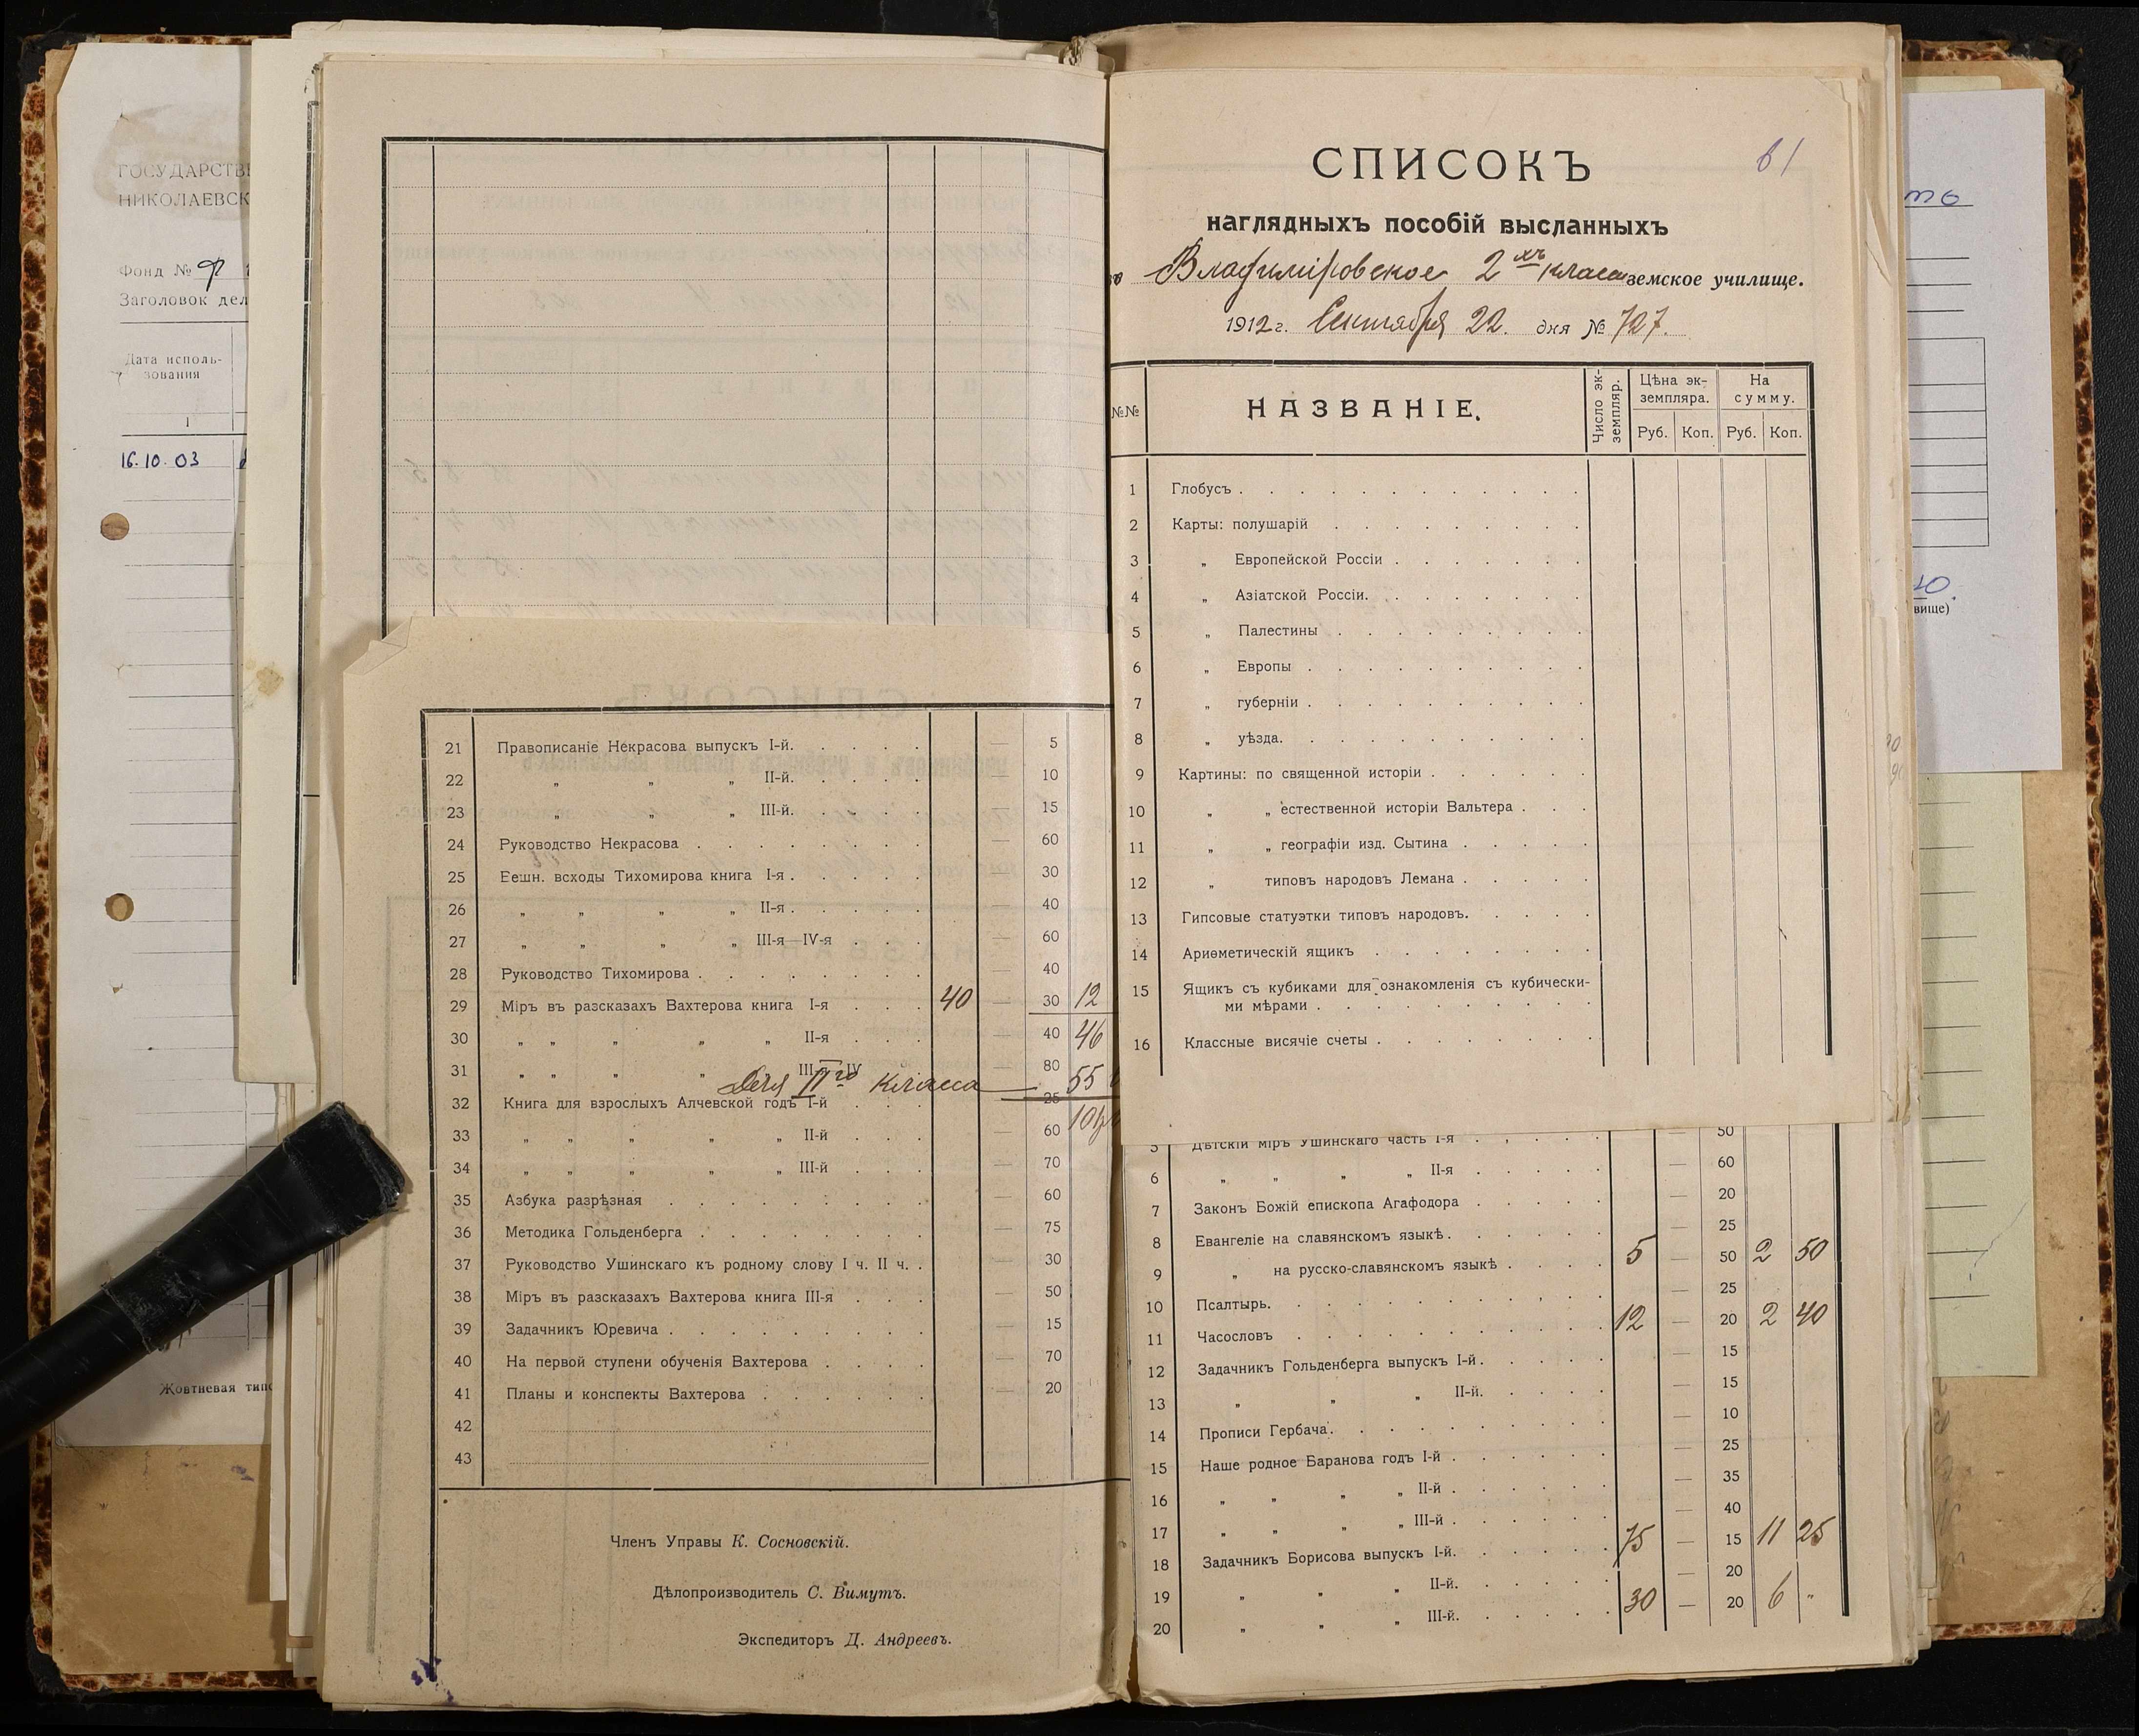 ГОСУДАРСТВ
НИКОЛАЕВСК
Фонд № Р
Заголовок дел
Дата исполь-
зования
1
16.10.03
Жовтневая типо
21 Правописаніе Некрасова выпускъ I-й. — 5
22 „ „ „ II-й. — 10
23 „ „ „ III-й. — 15
24 Руководство Некрасова — 60
25 Еешн. всходы Тихомирова книга I-я — 30
26 „ „ „ „ II-я — 40
27 „ „ „ „ III-я—IV-я — 60
28 Руководство Тихомирова — 40
29 Міръ въ разсказахъ Вахтерова книга I-я 40 — 30 12
30 „ „ „ „ „ II-я 40 46
31 „ „ „ „ III—IV 80
Для II го класса 55
32 Книга для взрослыхъ Алчевской годъ I-й 25
33 „ „ „ „ „ II-й — 60
34 „ „ „ „ „ III-й — 70
35 Азбука разрѣзная — 60
36 Методика Гольденберга — 75
37 Руководство Ушинскаго къ родному слову I ч. II ч. — 30
38 Міръ въ разсказахъ Вахтерова книга III-я — 50
39 Задачникъ Юревича — 15
40 На первой ступени обученія Вахтерова — 70
41 Планы и конспекты Вахтерова — 20
42
43
Членъ Управы К. Сосновскій.
Дѣлопроизводитель С. Вимутъ.
Экспедиторъ Д. Андреевъ.
61
СПИСОКЪ
наглядныхъ пособій высланныхъ
Владиміровское 2 хъ класн земское училище.
1912 г. Сентября 22. дня № 727.
№№ НАЗВАНІЕ. Число эк-земпляр. Цѣна эк-земпляра. На сумму.
Руб. Коп. Руб. Коп.
1 Глобусъ
2 Карты: полушарій
3 „ Европейской Россіи
4 „ Азіатской Россіи.
5 „ Палестины
6 „ Европы
7 „ губерніи
8 „ уѣзда.
9 Картины: по священной исторіи
10 „ „ естественной исторіи Вальтера
11 „ „ географіи изд. Сытина
12 „ типовъ народовъ Лемана
13 Гипсовые статуэтки типовъ народовъ.
14 Ариѳметическій ящикъ
15 Ящикъ съ кубиками для ознакомленія съ кубически-
ми мѣрами
16 Классные висячіе счеты
5 Дѣтскій міръ Ушинскаго часть I-я 50
6 „ „ „ „ II-я — 60
7 Законъ Божій епископа Агафодора — 20
8 Евангеліе на славянскомъ языкѣ. — 25
9 „ на русско-славянскомъ языкѣ 5 — 50 2 50
10 Псалтырь. — 25
11 Часословъ 12 — 20 2 40
12 Задачникъ Гольденберга выпускъ I-й. — 15
13 „ „ „ II-й. — 15
14 Прописи Гербача. — 10
15 Наше родное Баранова годъ I-й — 25
16 „ „ „ „ II-й — 35
17 „ „ „ „ III-й — 40
18 Задачникъ Борисова выпускъ I-й. 75 — 15 11 25
19 „ „ „ II-й. — 20
20 „ „ „ III-й. 30 — 20 6 „
вище)